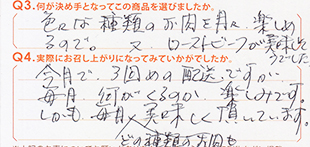 Q3.何が決め手となってこの商品を選びましたか。
色々な種類のお肉を月々、楽しめ
るので。又、ローストビーフが美味しそ
うでした
Q4.実際にお召し上がりになってみていかがでしたか。
今月で、3回めの配送ですが
毎月、何がくるのか楽しみです。
しかも毎月美味しく頂いています。
どの種類のお肉も